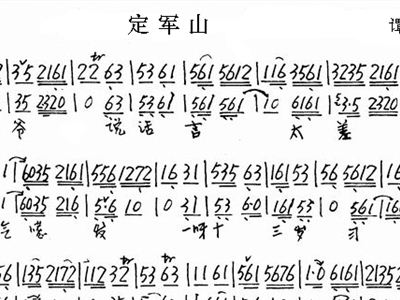 定军山 谭
35 2161 | 22 63 | 53 61 | 561 5612 | 116 3561 | 3235 2161 |
35 2320 | 0 63 | 53 61 | 561 561 | 10 6161 | 3·5 2320
爷 说 话 言 太 差
1 | 6035 2161 | 5561 272 | 16 31 | 535 63 | 1615 3 | 56 5612 | 16
1 | 6035 216 | 56 10 | 0 31 | 53 6·0 | 1615 3 | 0 561 | 1
气 恼 发 一呀十 三岁 习
56 | 135 2172 | 112 32 | 535 63 | 11 61 | 561 5676 | 1·0 6161 | 2135